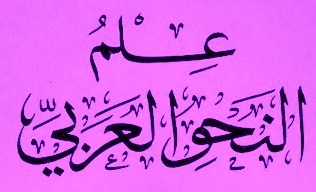 عِلْمُ
النَحْوِ العَرَبيّ